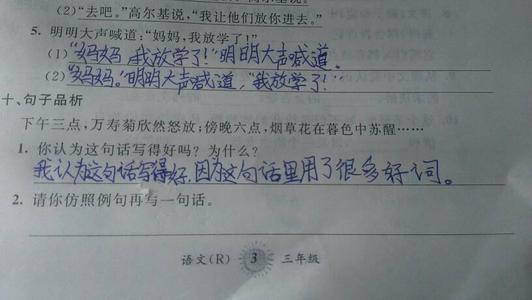 (2)“去吧。”高尔基说,“我让他们放你进去。”
5. 明明大声喊道:“妈妈,我放学了!”
(1)“妈妈,我放学了!”明明大声喊道。
(2)“妈妈。”明明大声喊道,“我放学了!”
十、句子品析
下午三点,万寿菊欣然怒放;傍晚六点,烟草花在暮色中苏醒……
1. 你认为这句话写得好吗?为什么?
我认为这句话写得好,因为这句话里用了很多好词。
2. 请你仿照例句再写一句话。
语文(R) 3 三年级